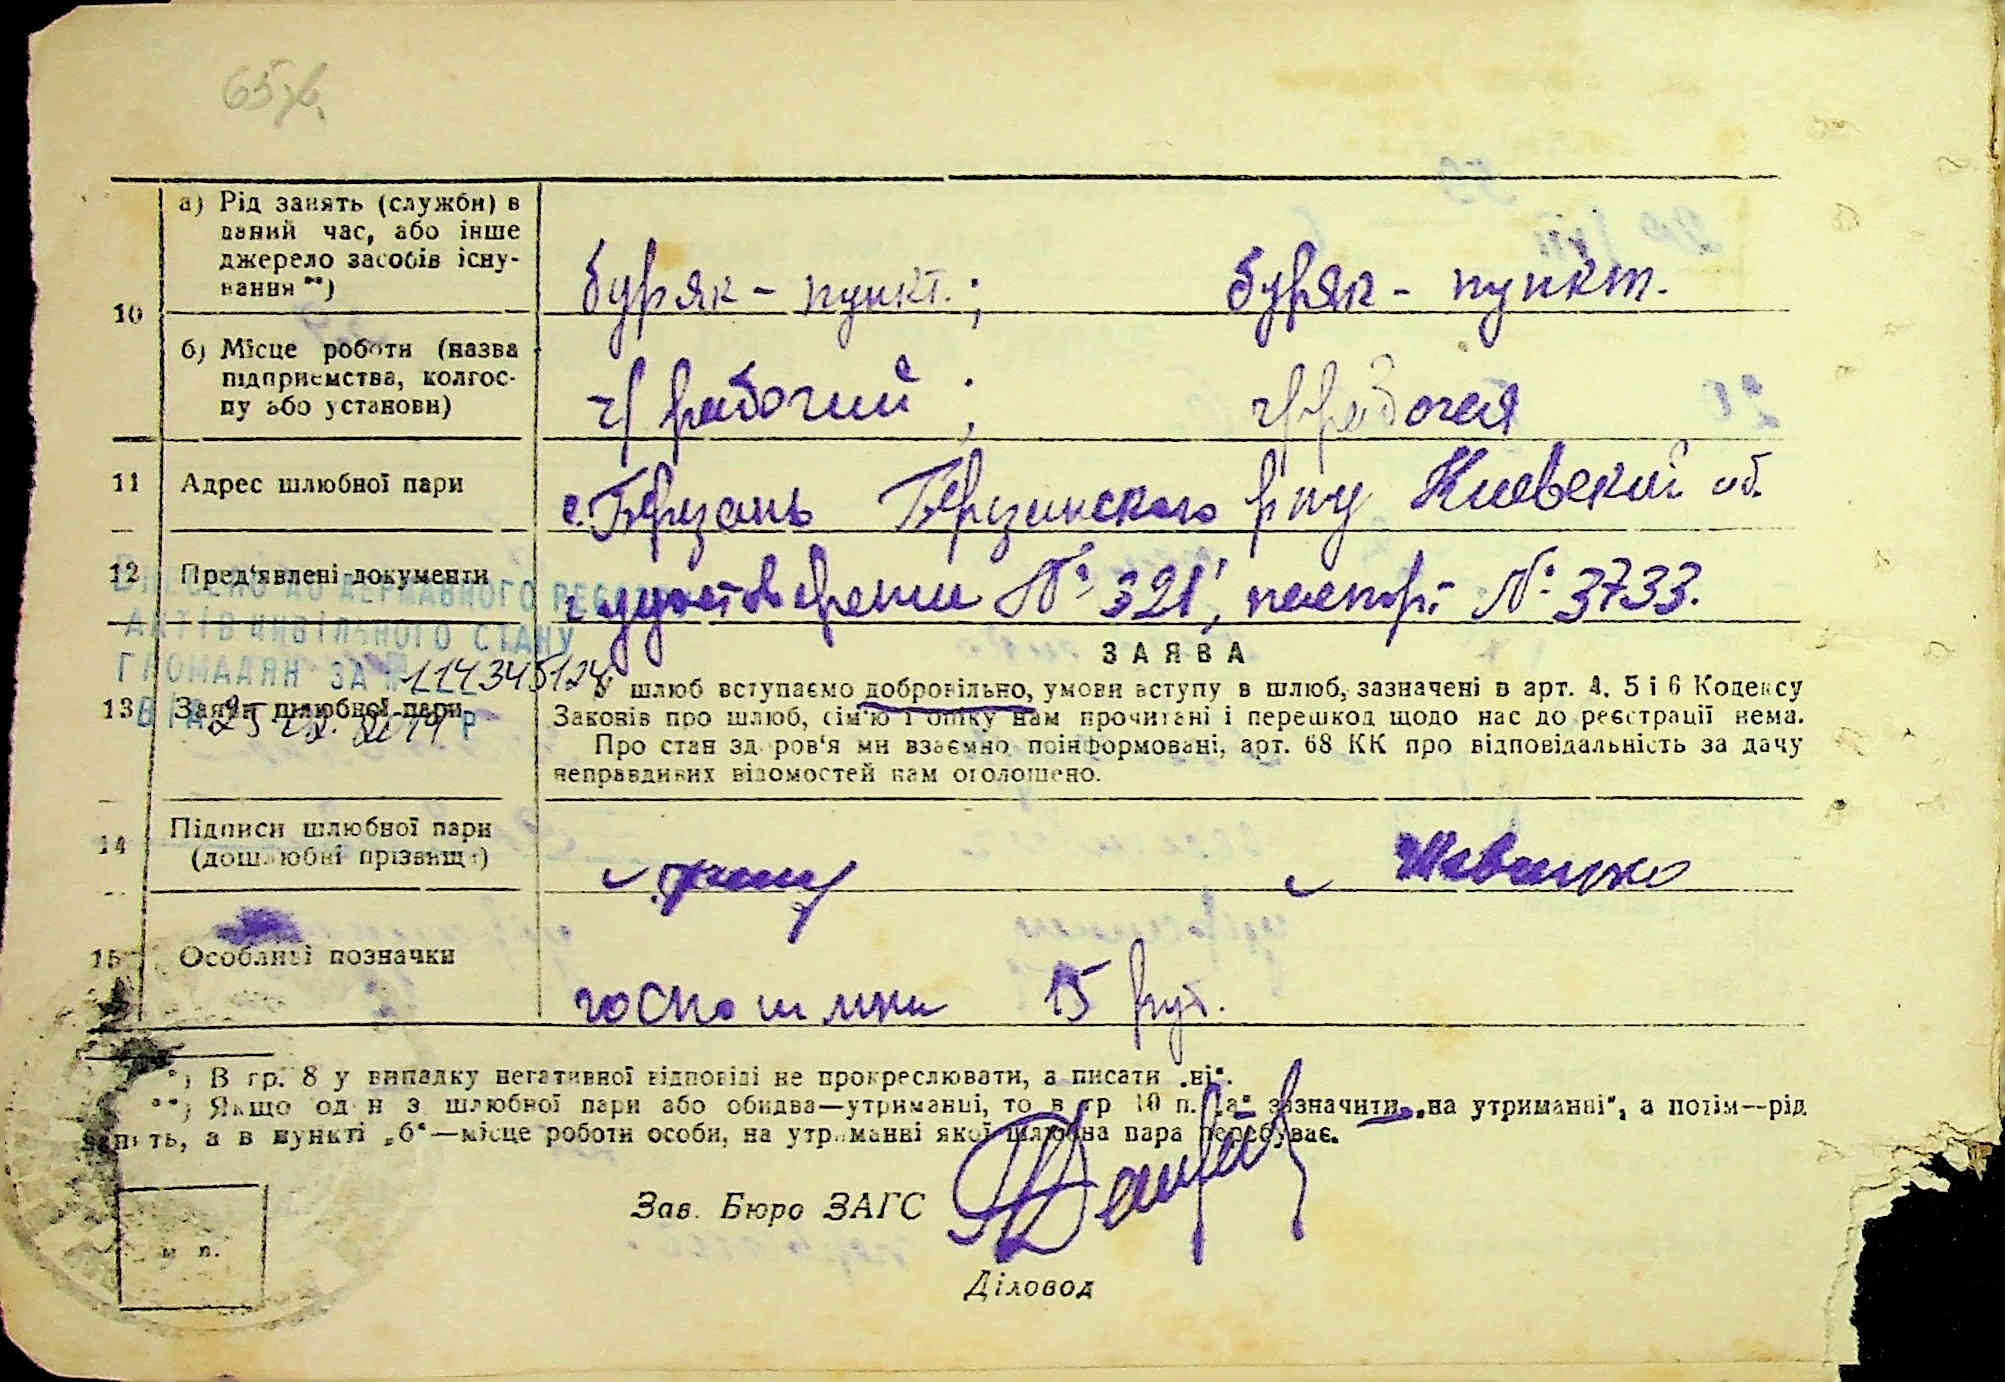 65 зв.
а) Рід занять (служби) в
даний час, або інше
джерело засобів існу-
вання **)
буряк - пункт.; буряк - пункт.
10
б) Місце роботи (назва
підприємства, колгос-
пу або установи)
ч/рабочий; ч/рабочая
11 Адрес шлюбної пари
с. Березань Березанского р-ну Киевской об.
12 Пред'явлені документи
удостоверении № 321, паспорт № 3733.
ВНЕСЕНО ДО ДЕРЖАВНОГО РЕЄСТРУ
АКТІВ ЦИВІЛЬНОГО СТАНУ
ГРОМАДЯН ЗА № 114345124
ВІД р
13 Заяви шлюбної пари
ЗАЯВА
У шлюб вступаємо добровільно, умови вступу в шлюб, зазначені в арт. 4, 5 і 6 Кодексу
Законів про шлюб, сім'ю і опіку нам прочитані і перешкод щодо нас до реєстрації нема.
Про стан здоров'я ми взаємно поінформовані, арт. 68 КК про відповідальність за дачу
неправдивих відомостей нам оголошено.
14 Підписи шлюбної пари
(дошлюбні прізвища)
Шевченко
15 Особливі позначки
госпошлини 15 руб.
*) В гр. 8 у випадку негативної відповіді не прокреслювати, а писати „ні“.
**) Якщо один з шлюбної пари або обидва—утриманці, то в гр 10 п. „а“ зазначити „на утриманні“, а потім—рід
занять, а в пункті „б“—місце роботи особи, на утриманні якої шлюбна пара перебуває.
Зав. Бюро ЗАГС
м п.
Діловод